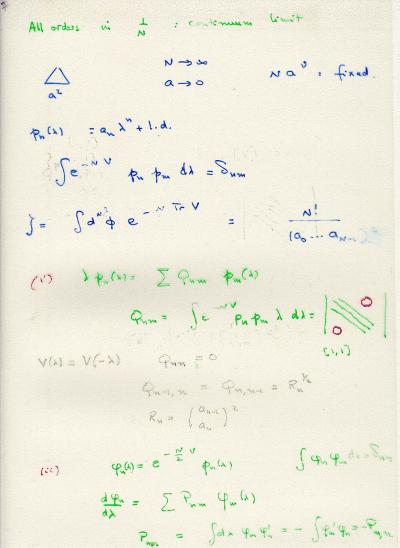 All orders in 1/N : continuum limit
N → ∞
a² a → 0 N a^ν = fixed.
p_n(λ) = a_n λ^n + l.d.
∫ e^{-NV} p_n p_m dλ = δ_nm
∫ d^{N²}φ e^{-N Tr V} = N! / (a_0 ... a_{N-1})²
(i) λ p_n(λ) = Σ Q_nm p_m(λ)
Q_nm = ∫ e^{-NV} p_n p_m λ dλ =
[1,1]
V(λ) = V(-λ) Q_nn = 0
Q_{n-1,n} = Q_{n,n-1} = R_n^{1/2}
R_n = (a_{n-1} / a_n)²
(ii) φ_n(λ) = e^{-N/2 V} p_n(λ) ∫ φ_n φ_m dλ = δ_nm
dφ_n/dλ = Σ P_nm φ_m(λ)
P_mn = ∫ dλ φ_m φ_n' = - ∫ φ_m' φ_n = -P_nm